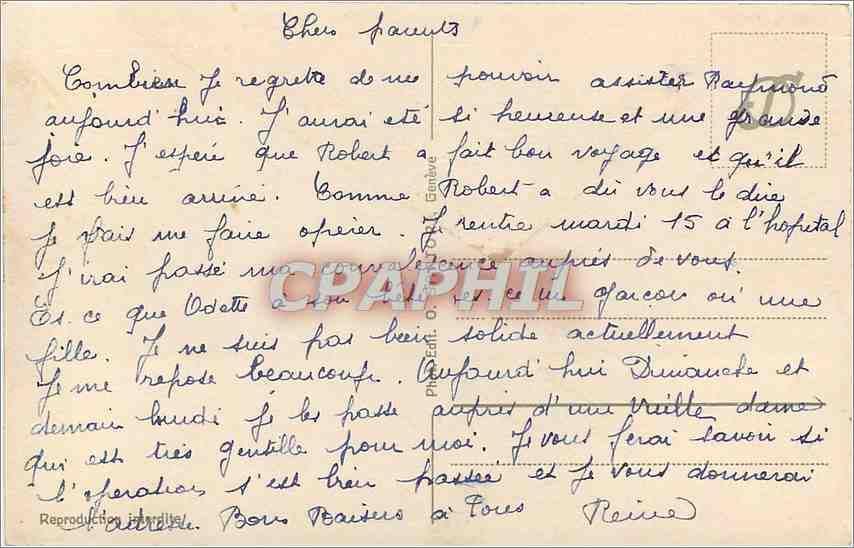 Chers parents
Combien je regrette de ne pouvoir assister Raymond
aujourd'hui. J'aurai été si heureuse et une grande
joie. J'espère que Robert a fait bon voyage et qu'il
est bien arrivé. Comme Robert a dû vous le dire
je vais me faire opérer. Je rentre mardi 15 à l'hopital
J'irai passé ma convalescence auprés de vous.
Es. ce que Odette à son bébé es. ce un garçon ou une
fille. Je ne suis pas bien solide actuellement
Je me repose beaucoup. Aujourd'hui Dimanche et
demain lundi je les passe auprès d'une vieille dame
qui est très gentille pour moi. Je vous ferai savoir si
l'opération s'est bien passée et je vous donnerai
l'adresse. Bons Baisers à Tous Reine
Reproduction interdite
Photo-Edit. O. Genève
CPAPHIL